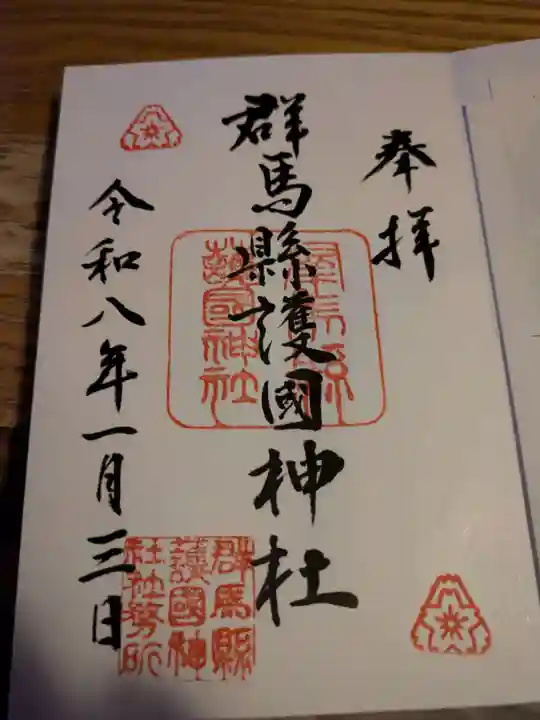 奉拝
群馬縣護國神社
群馬縣
護國神社
令和八年一月三日
群馬縣
護國神
社社務所